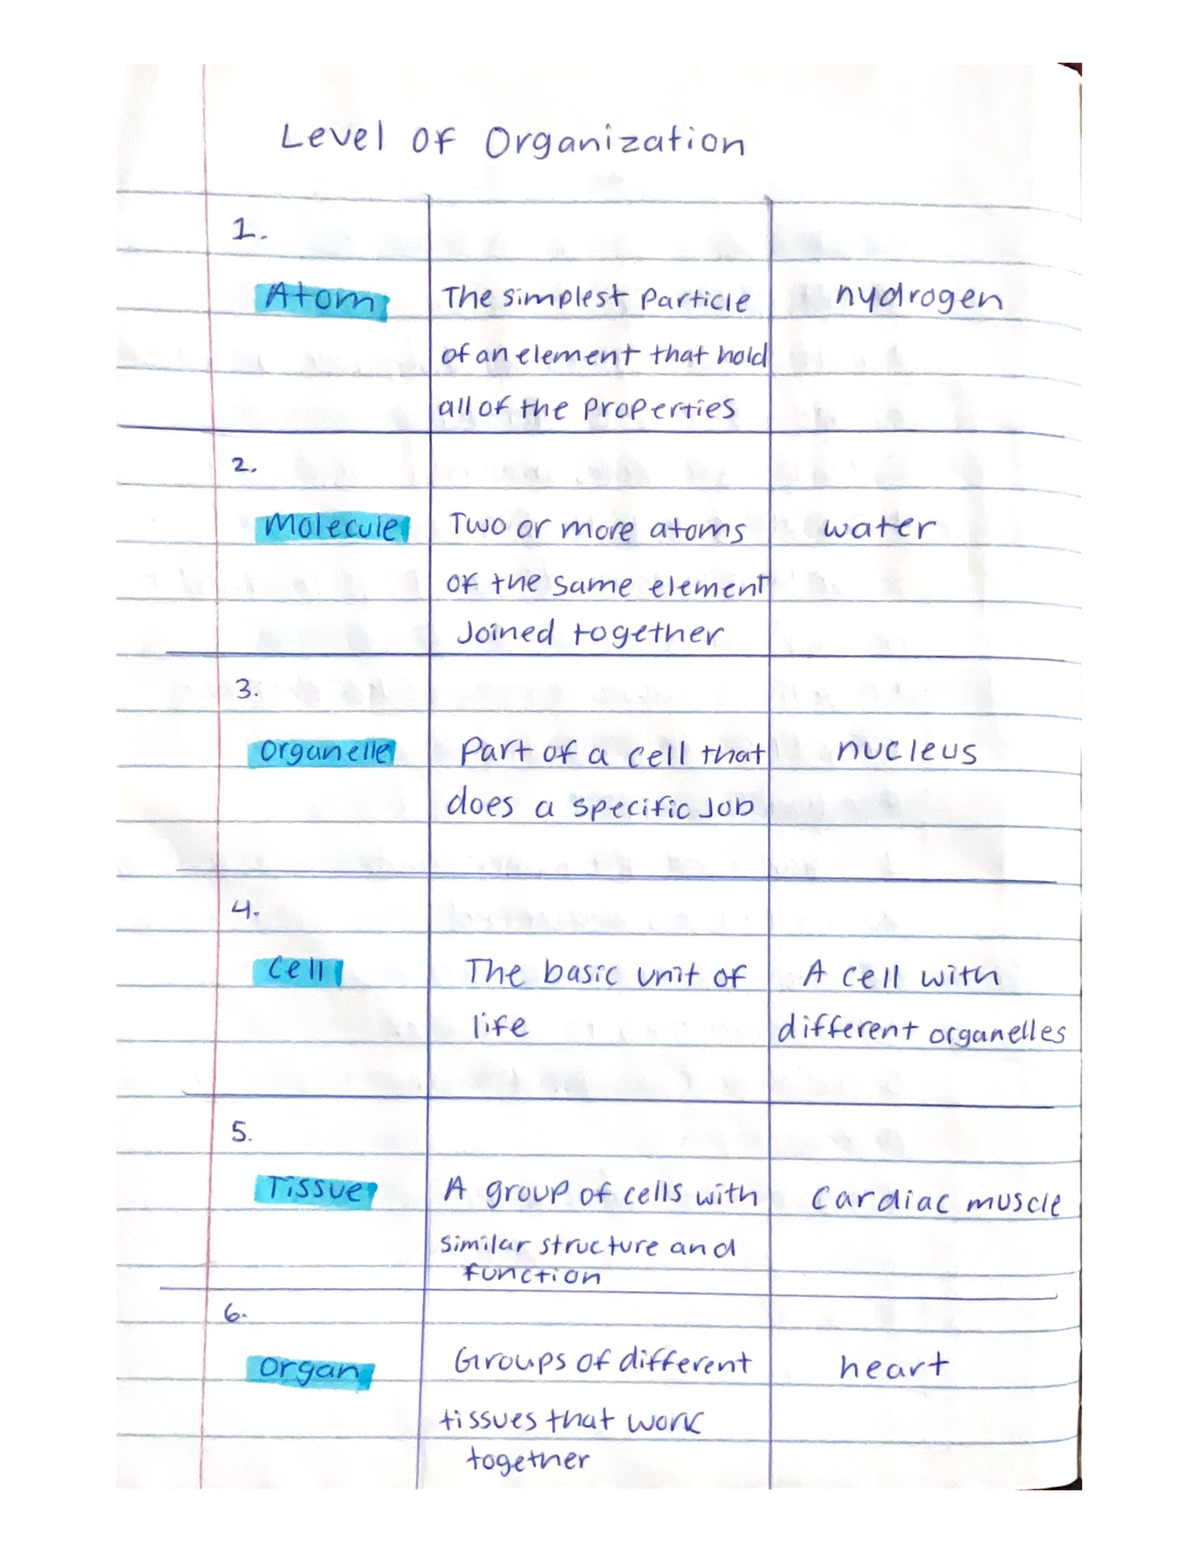 Level of Organization
1.
Atom The simplest Particle hydrogen
of an element that hold
all of the properties
2.
Molecule Two or more atoms water
of the same element
Joined together
3.
organelle Part of a cell that nucleus
does a specific Job
4.
Cell The basic unit of A cell with
life different organelles
5.
Tissue A group of cells with Cardiac muscle
similar structure and
function
6.
organ Groups of different heart
tissues that work
together